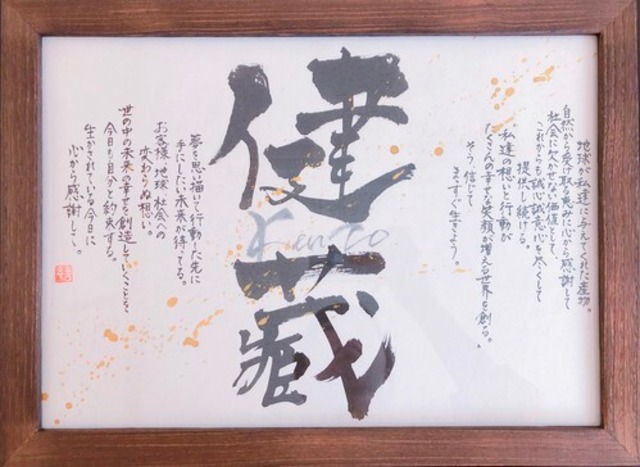 地球が私達に与えてくれた産物。
自然から受け取る恵みに心から感謝して
社会に欠かせない価値として、
これからも誠心誠意心を尽くして
提供し続ける。
私達の想いと行動が
たくさんの幸せな笑顔が増える世界を創る。
そう信じて
まっすぐ生きよう。
健藏
Kenzo
夢を思い描いて行動した先に
手にしたい未来が待ってる。
お客様、地球、社会への
変わらぬ想い。
世の中の未来の幸せを創造していくことを
今日も自分と約束する。
生かされている今日に
心から感謝して。